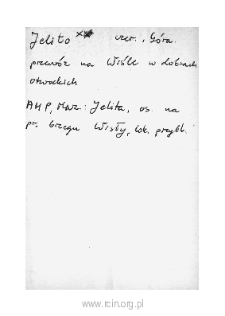 Jelito xx czer., Góra
przewóz na Wiśle w dobrach
otwockich
AHP, Maz: Jelita, os na
pr. brzegu Wisły, lok. przybl.
www.rcin.org.pl